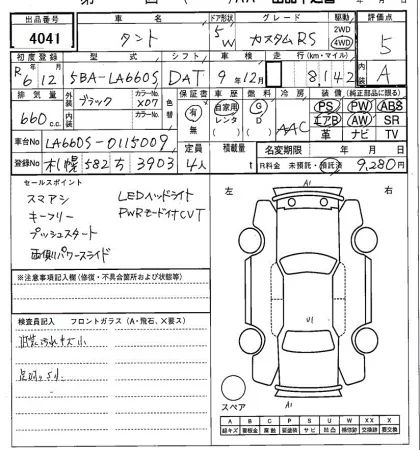 出品番号 車名 ドア形状 グレード 駆動 評価点
4041 タント 5W カスタムRS 2WD 4WD 5
初度登録 型式 シフト 車検 走行(km・マイル) 内装
R6年12月 5BA-LA660S DAT 9年12月 8,142 A
排気量 外装色 カラーNo. 内装色 カラーNo. 色替 保証書 車歴 燃料 冷房 装備(純正部品に限る)
660c.c. ブラック X07 有 無 自家用 レンタ G D AAC PS PW ABS
エアB AW SR
革 ナビ TV
車台No LA660S-0115009 定員 積載量 名変期限 年 月 日
登録No 札幌 582 ち 3903 4人 t R料金 未預託・預託済 9,280円
セールスポイント
スマアシ LEDヘッドライト
キーフリー PWRモード付CVT
プッシュスタート
両側パワースライド
左 右
A1
U1
A1
スペア
※注意事項記入欄(修復・不具合箇所および状態等)
検査員記入 フロントガラス(A・飛石、X要ス)
A B C P S U W XX X
線キズ 要板金 腐食 要塗装 サビ 凹凸 補修跡 交換跡 要交換